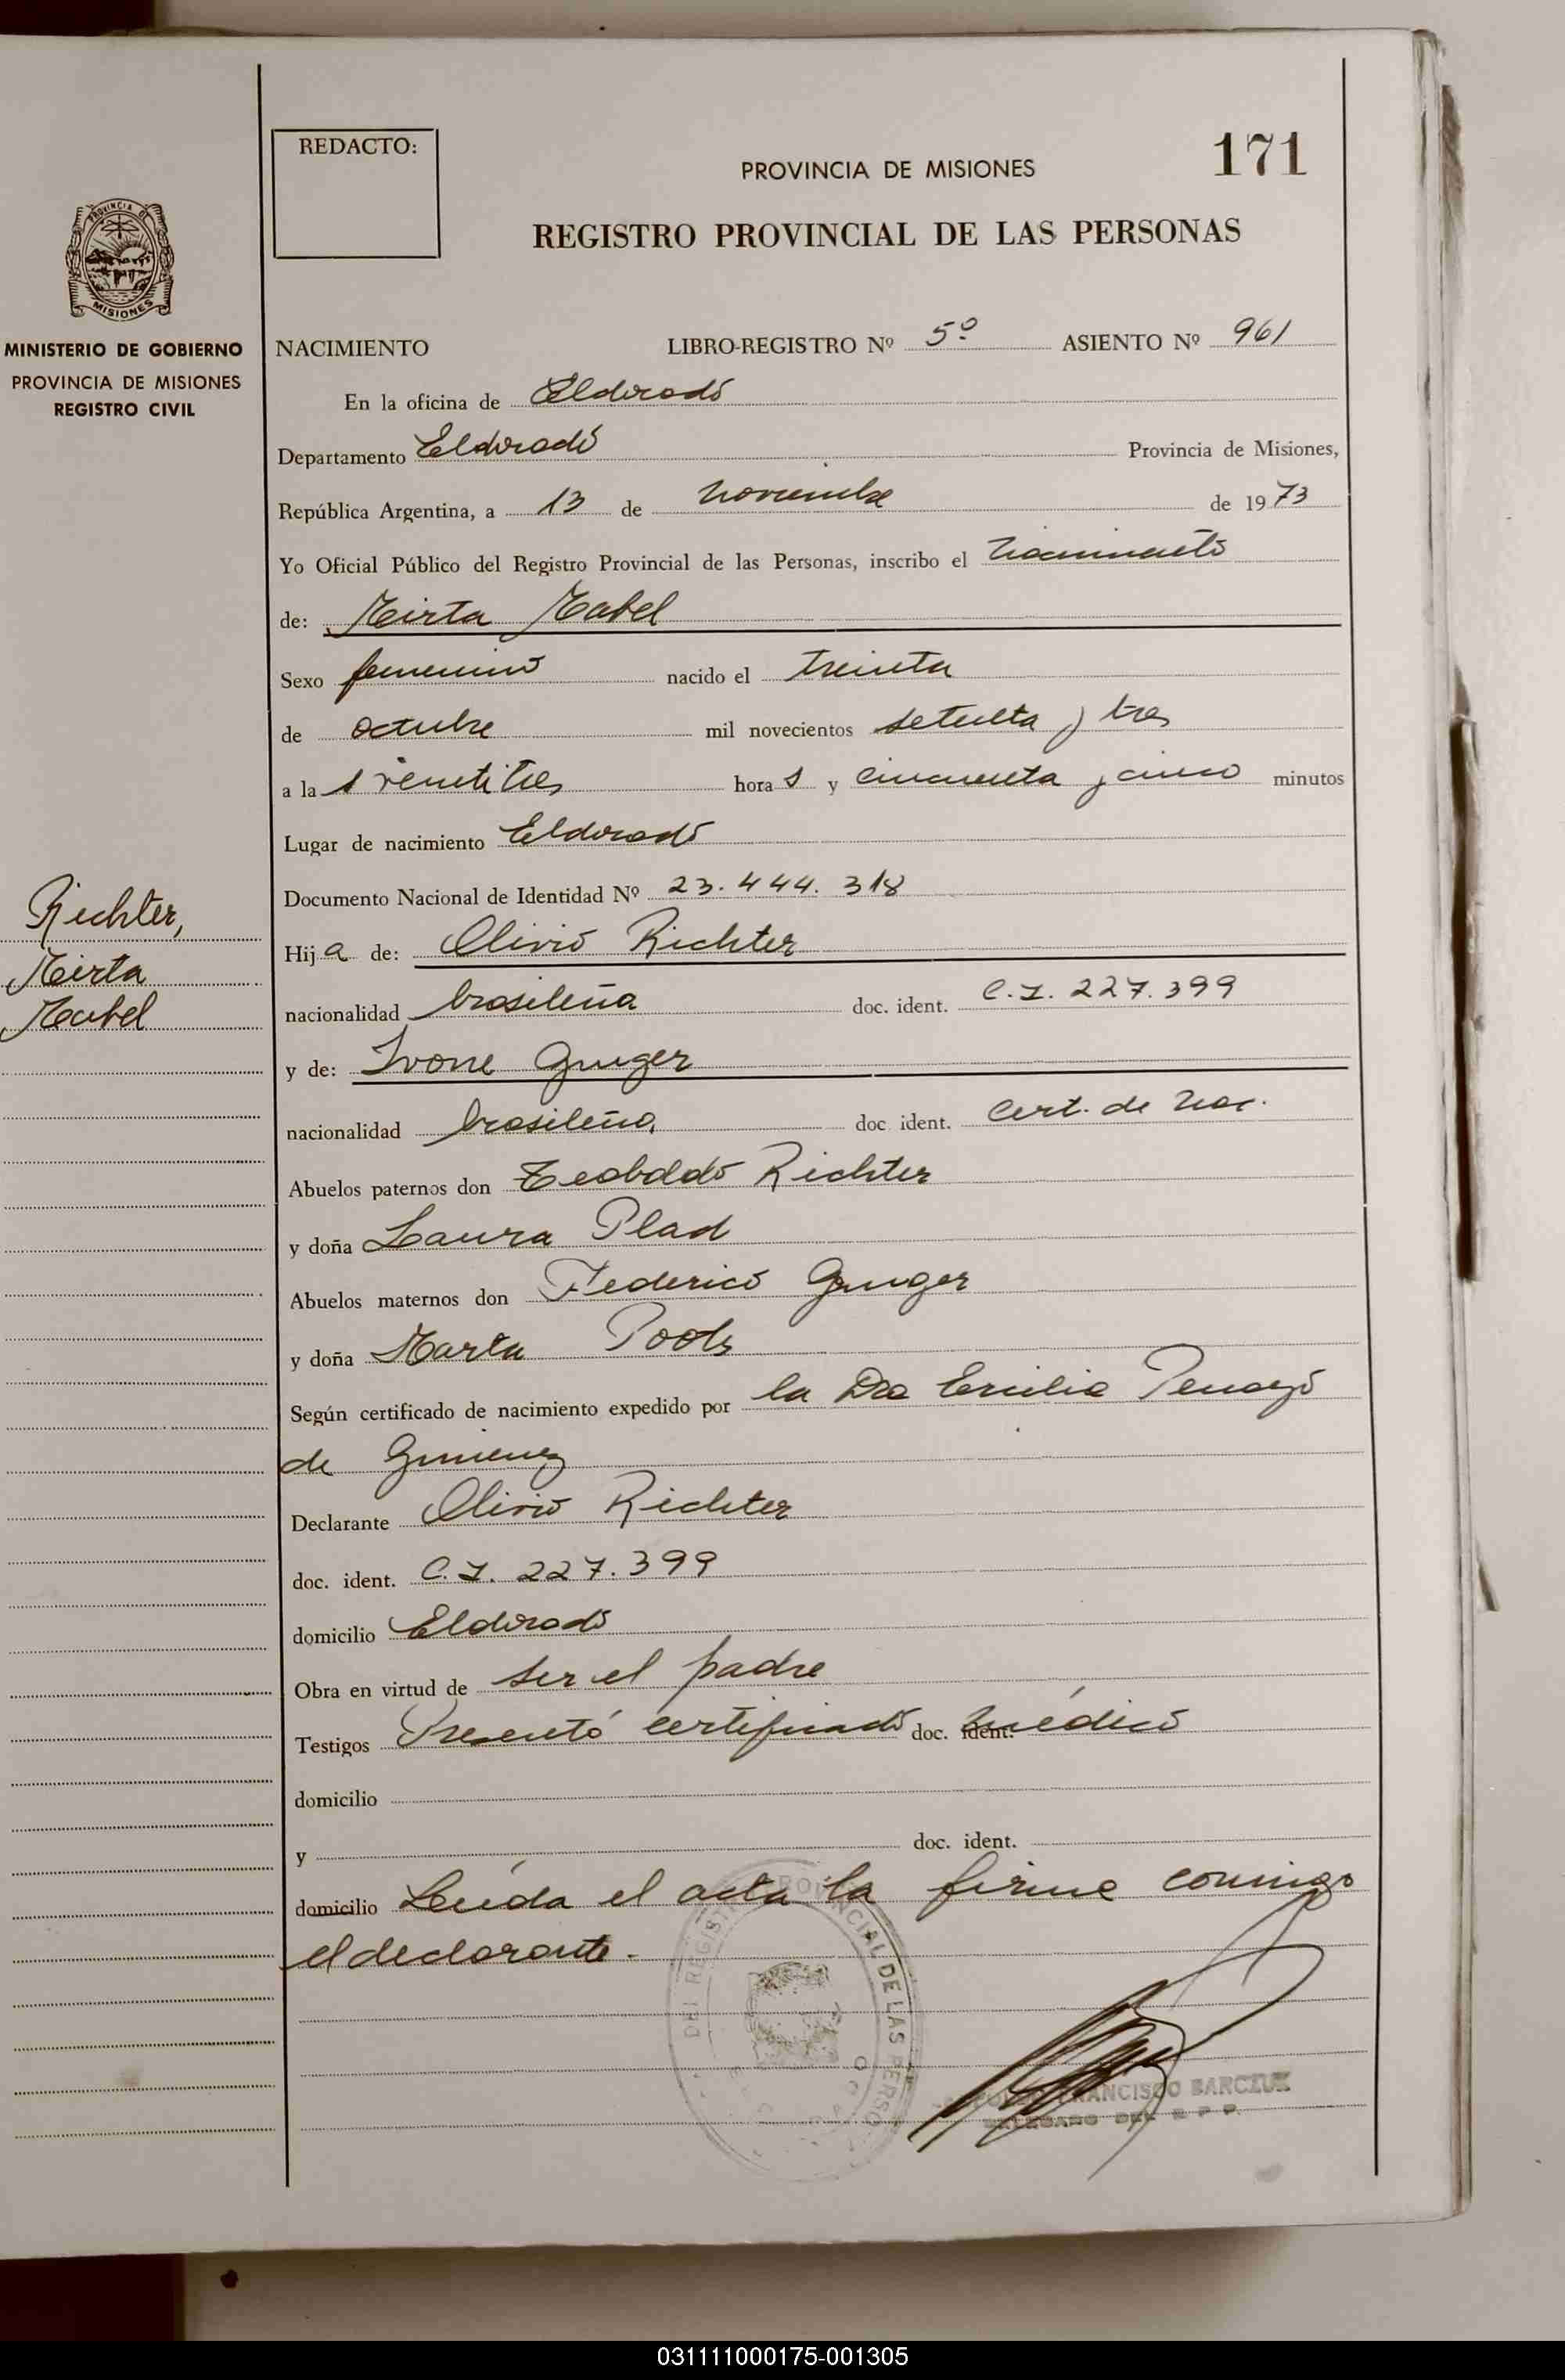 REDACTO:
171
PROVINCIA DE MISIONES
REGISTRO PROVINCIAL DE LAS PERSONAS
PROVINCIA DE
MISIONES
MINISTERIO DE GOBIERNO
PROVINCIA DE MISIONES
REGISTRO CIVIL
Richter,
Mirta
Mabel
NACIMIENTO LIBRO-REGISTRO Nº 5º ASIENTO Nº 961
En la oficina de Eldorado
Departamento Eldorado Provincia de Misiones,
República Argentina, a 13 de noviembre de 1973
Yo Oficial Público del Registro Provincial de las Personas, inscribo el nacimiento
de: Mirta Mabel
Sexo femenino nacido el treinta
de octubre mil novecientos setenta y tres
a la s veintitres hora s y cincuenta y cinco minutos
Lugar de nacimiento Eldorado
Documento Nacional de Identidad Nº 23.444.318
Hij a de: Olivio Richter
nacionalidad brasileña doc. ident. C.I. 227.399
y de: Ivone
nacionalidad brasileña doc. ident. Cert. de nac.
Abuelos paternos don Teobaldo Richter
y doña Laura Plad
Abuelos maternos don Federico
y doña Marta
Según certificado de nacimiento expedido por la Dra Ercilia Penayo
de Gimenez
Declarante Olivio Richter
doc. ident. C.I. 227.399
domicilio Eldorado
Obra en virtud de ser el padre
Testigos Presentó certificado doc. ident. médico
domicilio
y doc. ident.
domicilio Leída el acta la firma conmigo
el declarante.
DEL REGISTRO PROVINCIAL DE LAS PERSO
FRANCISCO BARCZUK
DELEGADO DEL R P P.
031111000175-001305